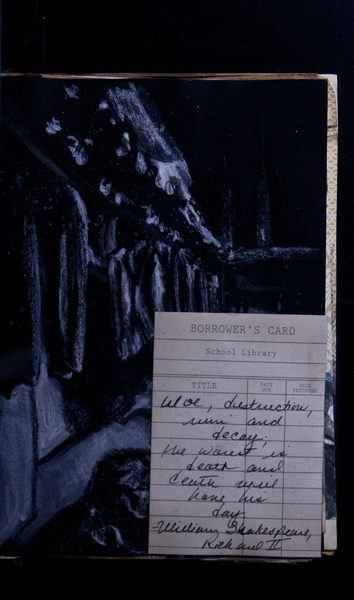 BORROWER'S CARD
School Library
TITLE DATE DUE DATE RETURNED
Woe, distruction,
ruin and
decay;
the worst is
death and
death will
have his
day.
-William Shakespeare,
Richard II